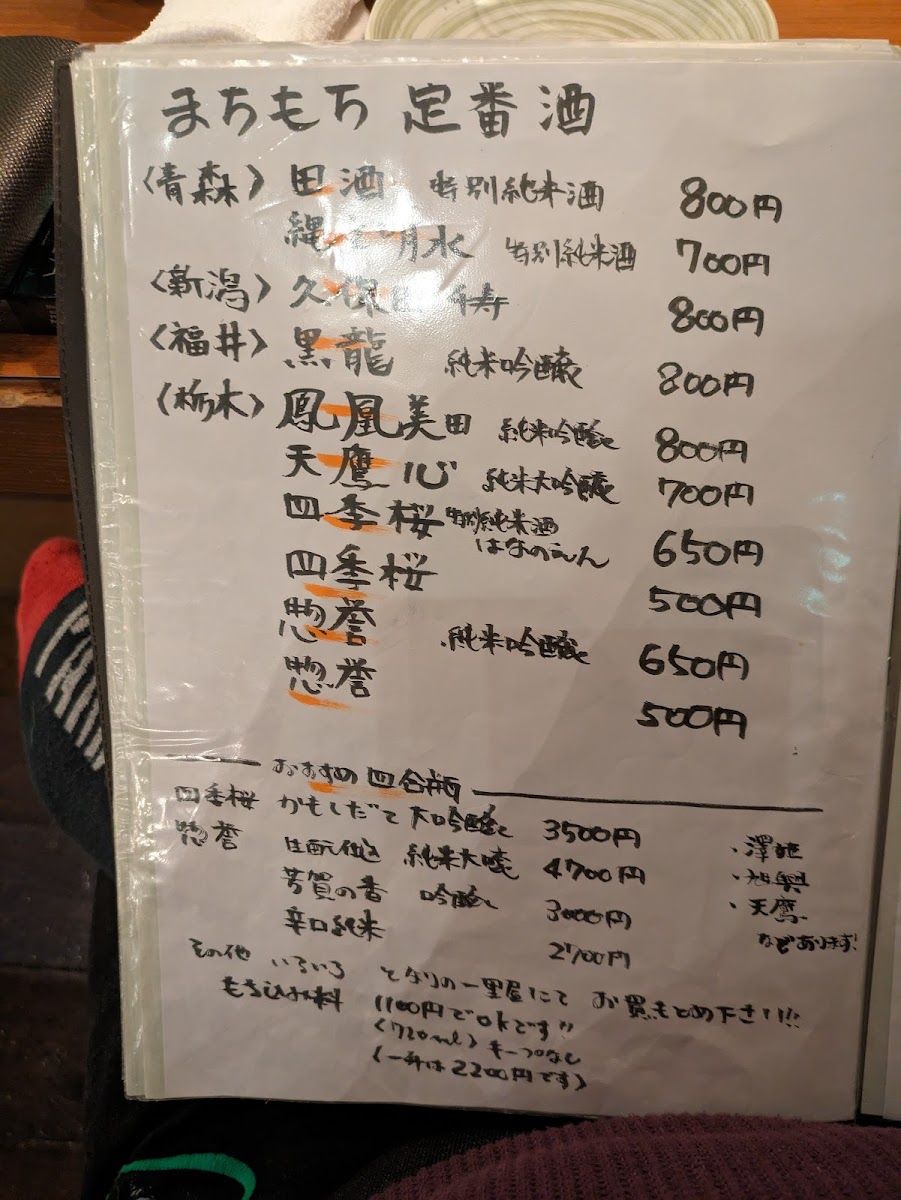 まちもち 定番酒
〈青森〉 田酒 特別純米酒 800円
縄文明水 特別純米酒 700円
〈新潟〉 久保田 千寿 800円
〈福井〉 黒龍 純米吟醸 800円
〈栃木〉 鳳凰美田 純米吟醸 800円
天鷹心 純米大吟醸 700円
四季桜 特別純米酒 はなのえん 650円
四季桜 500円
惣誉 純米吟醸 650円
惣誉 500円
おすすめ 四合瓶
四季桜 かもしだて 大吟醸 3500円
惣誉 生酛仕込 純米大吟醸 4700円
芳賀の香 吟醸 3000円
辛口純米 2700円
・澤姫
・旭興
・天鷹
などあります!
その他 いろいろ となりの一里屋にて お買いもとめ下さい!!!
もち込み料 1100円でOKです!!
(720ml) キープなし
(一升は2200円です)